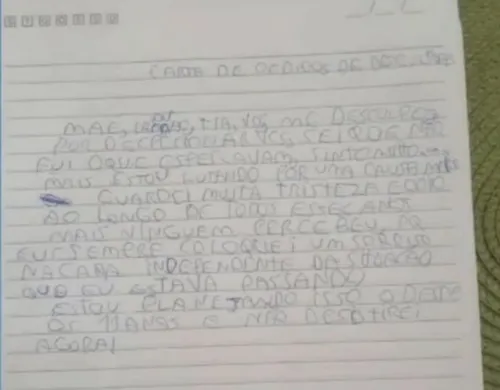 CARTA DE PEDIDOS DE DESCULPAS
MAE, PAI, TIA, VOS ME DESCULPEM
POR DECEPCIONAR VCS, SEI QUE NAO
FUI O QUE ESPERAVAM, SINTO MUITO
MAIS ESTOU LUTANDO POR UMA CAUSA
GUARDEI MUITA TRISTEZA E ODIO
AO LONGO DE TODOS ESSES ANOS
MAIS NINGUEM PERCEBEU
EU SEMPRE COLOQUEI UM SORRISO
NA CARA INDEPENDENTE DA SITUAÇÃO
QUE EU ESTAVA PASSANDO
ESTOU PLANEJANDO ISSO DESDE
OS 11 ANOS E NÃO DESISTIREI
AGORA!